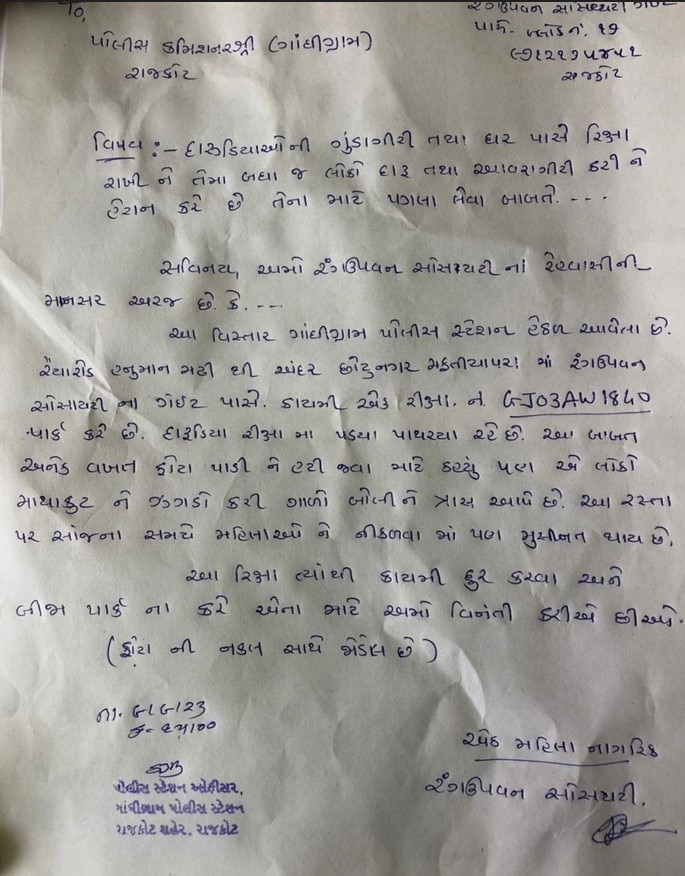 To,
પોલીસ કમિશનરશ્રી (ગાંધીગ્રામ)
રાજકોટ
રંગઉપવન સોસાયટી
પાર્ક. બ્લોક નં. ૧૭
રાજકોટ
વિષય :- દારૂડિયાઓની ગુંડાગીરી તથા ઘર પાસે રિક્ષા
રાખી ને તેમા બધા જ લોકો દારૂ તથા આવારાગીરી કરી ને
હેરાન કરે છે તેના માટે પગલા લેવા બાબતે. ---
સવિનય, અમો રંગઉપવન સોસાયટી નાં રહેવાસીની
માનસર અરજ છે. કે. ---
આ વિસ્તાર ગાંધીગ્રામ પોલીસ સ્ટેશન હેઠળ આવેલા છે.
રૈયારોડ હનુમાન મઢી થી અંદર છોટુનગર મફતીયાપરા માં રંગઉપવન
સોસાયટી ના ગેઈટ પાસે. કાયમી એક રીક્ષા. નં. GJ03AW1840
પાર્ક કરે છે. દારૂડિયા રીક્ષા મા પડયા પાથરયા રહે છે. આ બાબત
અનેક વખત ફોટા પાડી ને હટી જવા માટે કહ્યું પણ એ લોકો
માથાકુટ ને ઝગડો કરી ગાળો બોલી ને ત્રાસ આપે છે. આ રસ્તા
પર સાંજના સમયે મહિલાઓ ને નીકળવા માં પણ મુસીબત થાય છે.
આ રિક્ષા ત્યાંથી કાયમી દુર કરવા અને
બીજા પાર્ક ના કરે એના માટે અમો વિનંતી કરીએ છીએ.
(ફોટા ની નકલ સાથે જોડેલ છે)
તા. ૯/૯/23
પોલીસ સ્ટેશન ઓફીસર,
ગાંધીગ્રામ પોલીસ સ્ટેશન
રાજકોટ શહેર, રાજકોટ
એક મહિલા નાગરિક
રંગઉપવન સોસાયટી.